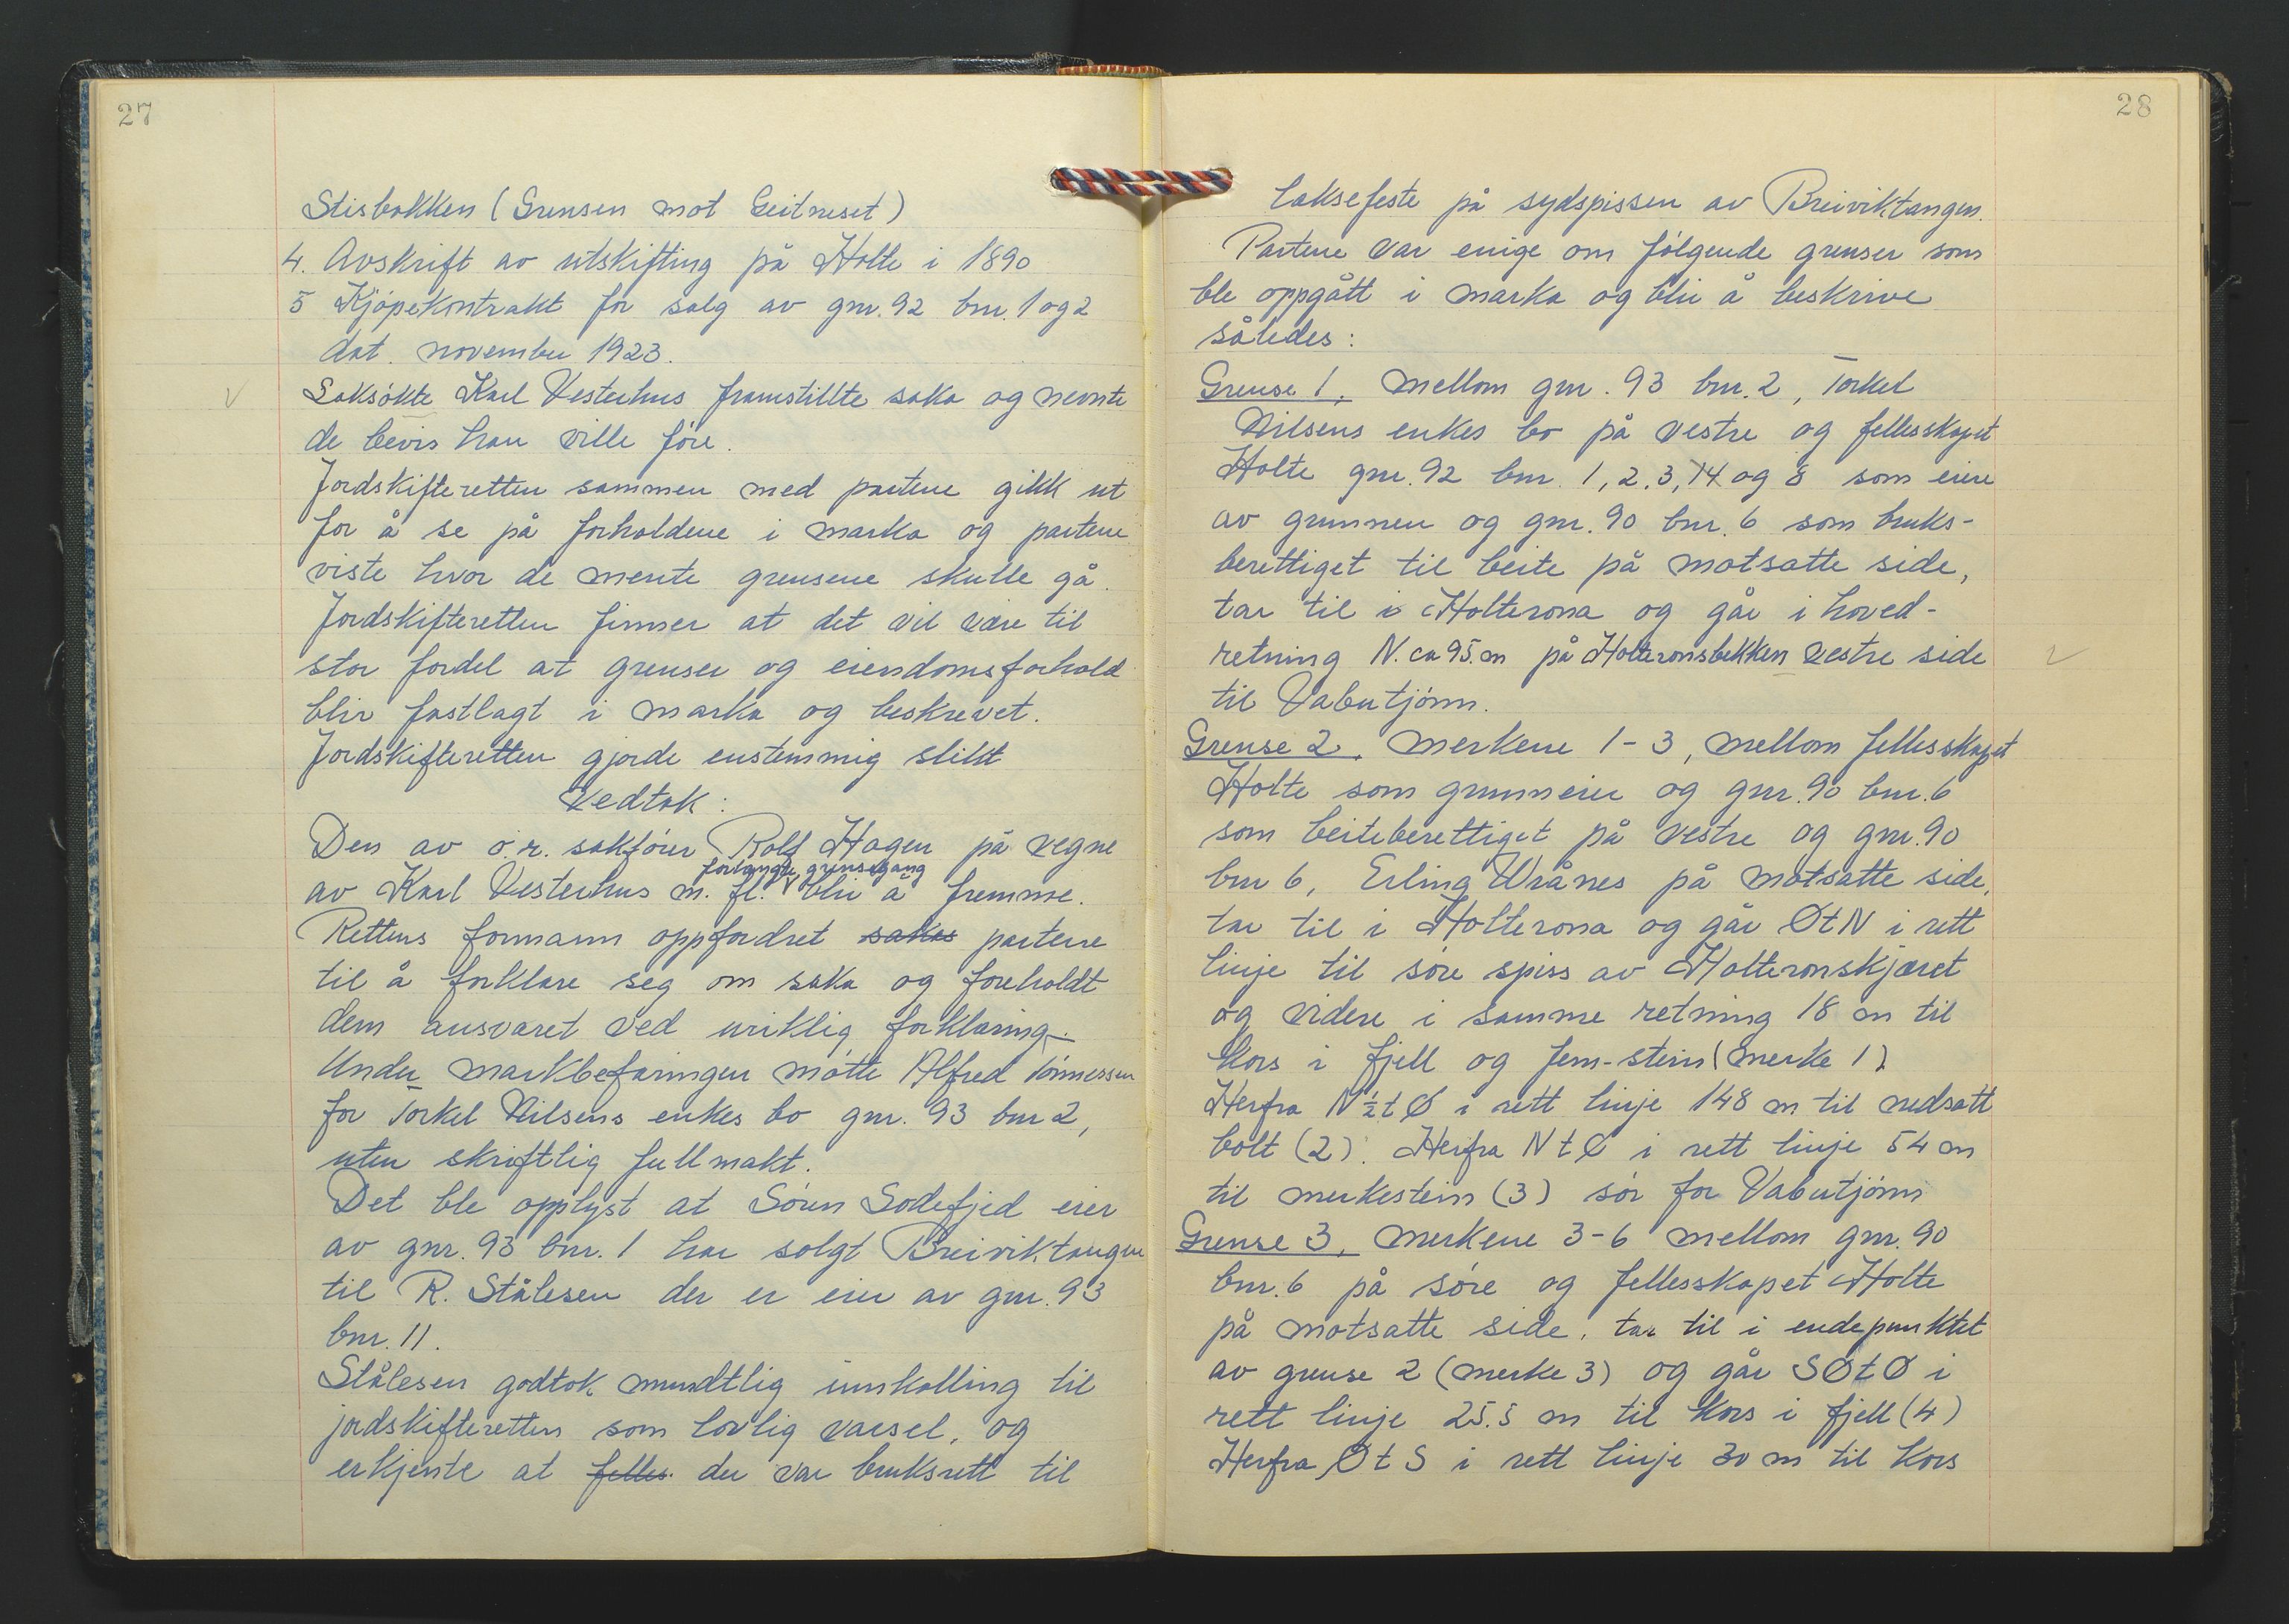 27
Stisbakken (Grensen mot Geitneset)
4. Avskrift av utskifting på Holte i 1890
5 Kjöpekontrakt for salg av gnr. 92 bnr. 1 og 2
dat. november 1923.
Saksökte Karl Vesterhus framstillte saka og nevnte
de bevis han ville före.
Jordskifteretten sammen med partene gikk ut
for å se på forholdene i marka og partene
viste hvor de mente grensene skulle gå.
Jordskifteretten finner at det vil være til
stor fordel at grenser og eiendomsforhold
blir fastlagt i marka og beskrevet.
Jordskifteretten gjorde enstemmig slikt
Vedtak:
Den av o.r. sakförer Rolf Hagen på vegne
forlangte grensegang
av Karl Vesterhus m. fl. v blir å fremme.
Rettens formann oppfordret sakas partene
til å forklare seg om saka og foreholdt
dem ansvaret ved uriktig forklaring.
Under markbefaringen mötte Alfred Tönnessen
for Torkel Nilsens enkes bo gnr. 93 bnr 2,
uten skriftlig fullmakt.
Det ble opplyst at Sören Sodefjed eier
av gnr. 93 bnr. 1 har solgt Breiviktangen
til R. Stålesen der er eier av gnr. 93
bnr. 11.
Stålesen godtok mundtlig innkalling til
jordskifteretten som lovlig varsel, og
erkjente at felles der var bruksrett til
28
laksefeste på sydspissen av Breiviktangen.
Partene var enige om fölgende grenser som
ble oppgått i marka og blir å beskrive
således:
Grense 1, mellom gnr. 93 bnr. 2, Torkel
Nilsens enkes bo på vestre og fellesskapet
Holte gnr. 92 bnr. 1, 2, 3, 74 og 8 som eiere
av grunnen og gnr. 90 bnr. 6 som bruks-
berettiget til beite på motsatte side,
tar til i Holterona og går i hoved-
retning N. ca 95. m på Holteronsbekken vestre side
til Vabutjönn.
Grense 2, merkene 1-3, mellom fellesskapet
Holte som grunneier og gnr. 90 bnr. 6
som beiteberettiget på vestre og gnr. 90
bnr 6, Erling Urånes på motsatte side,
tar til i Holterona og går ØtN i rett
linje til söre spiss av Holteronskjæret
og videre i samme retning 18 m til
kors i fjell og fem-stein (merke 1).
Herfra N ½ t Ø i rett linje 148 m til nedsatt
bolt (2). Herfra N t Ø i rett linje 54 m
til merkestein (3) sör for Vabutjönn
Grense 3, merkene 3-6 mellom gnr. 90
bnr. 6 på söre og fellesskapet Holte
på motsatte side, tar til i endepunktet
av grense 2 (merke 3) og går SØtØ i
rett linje 25.5 m til kors i fjell (4)
Herfra ØtS i rett linje 30 m til kors